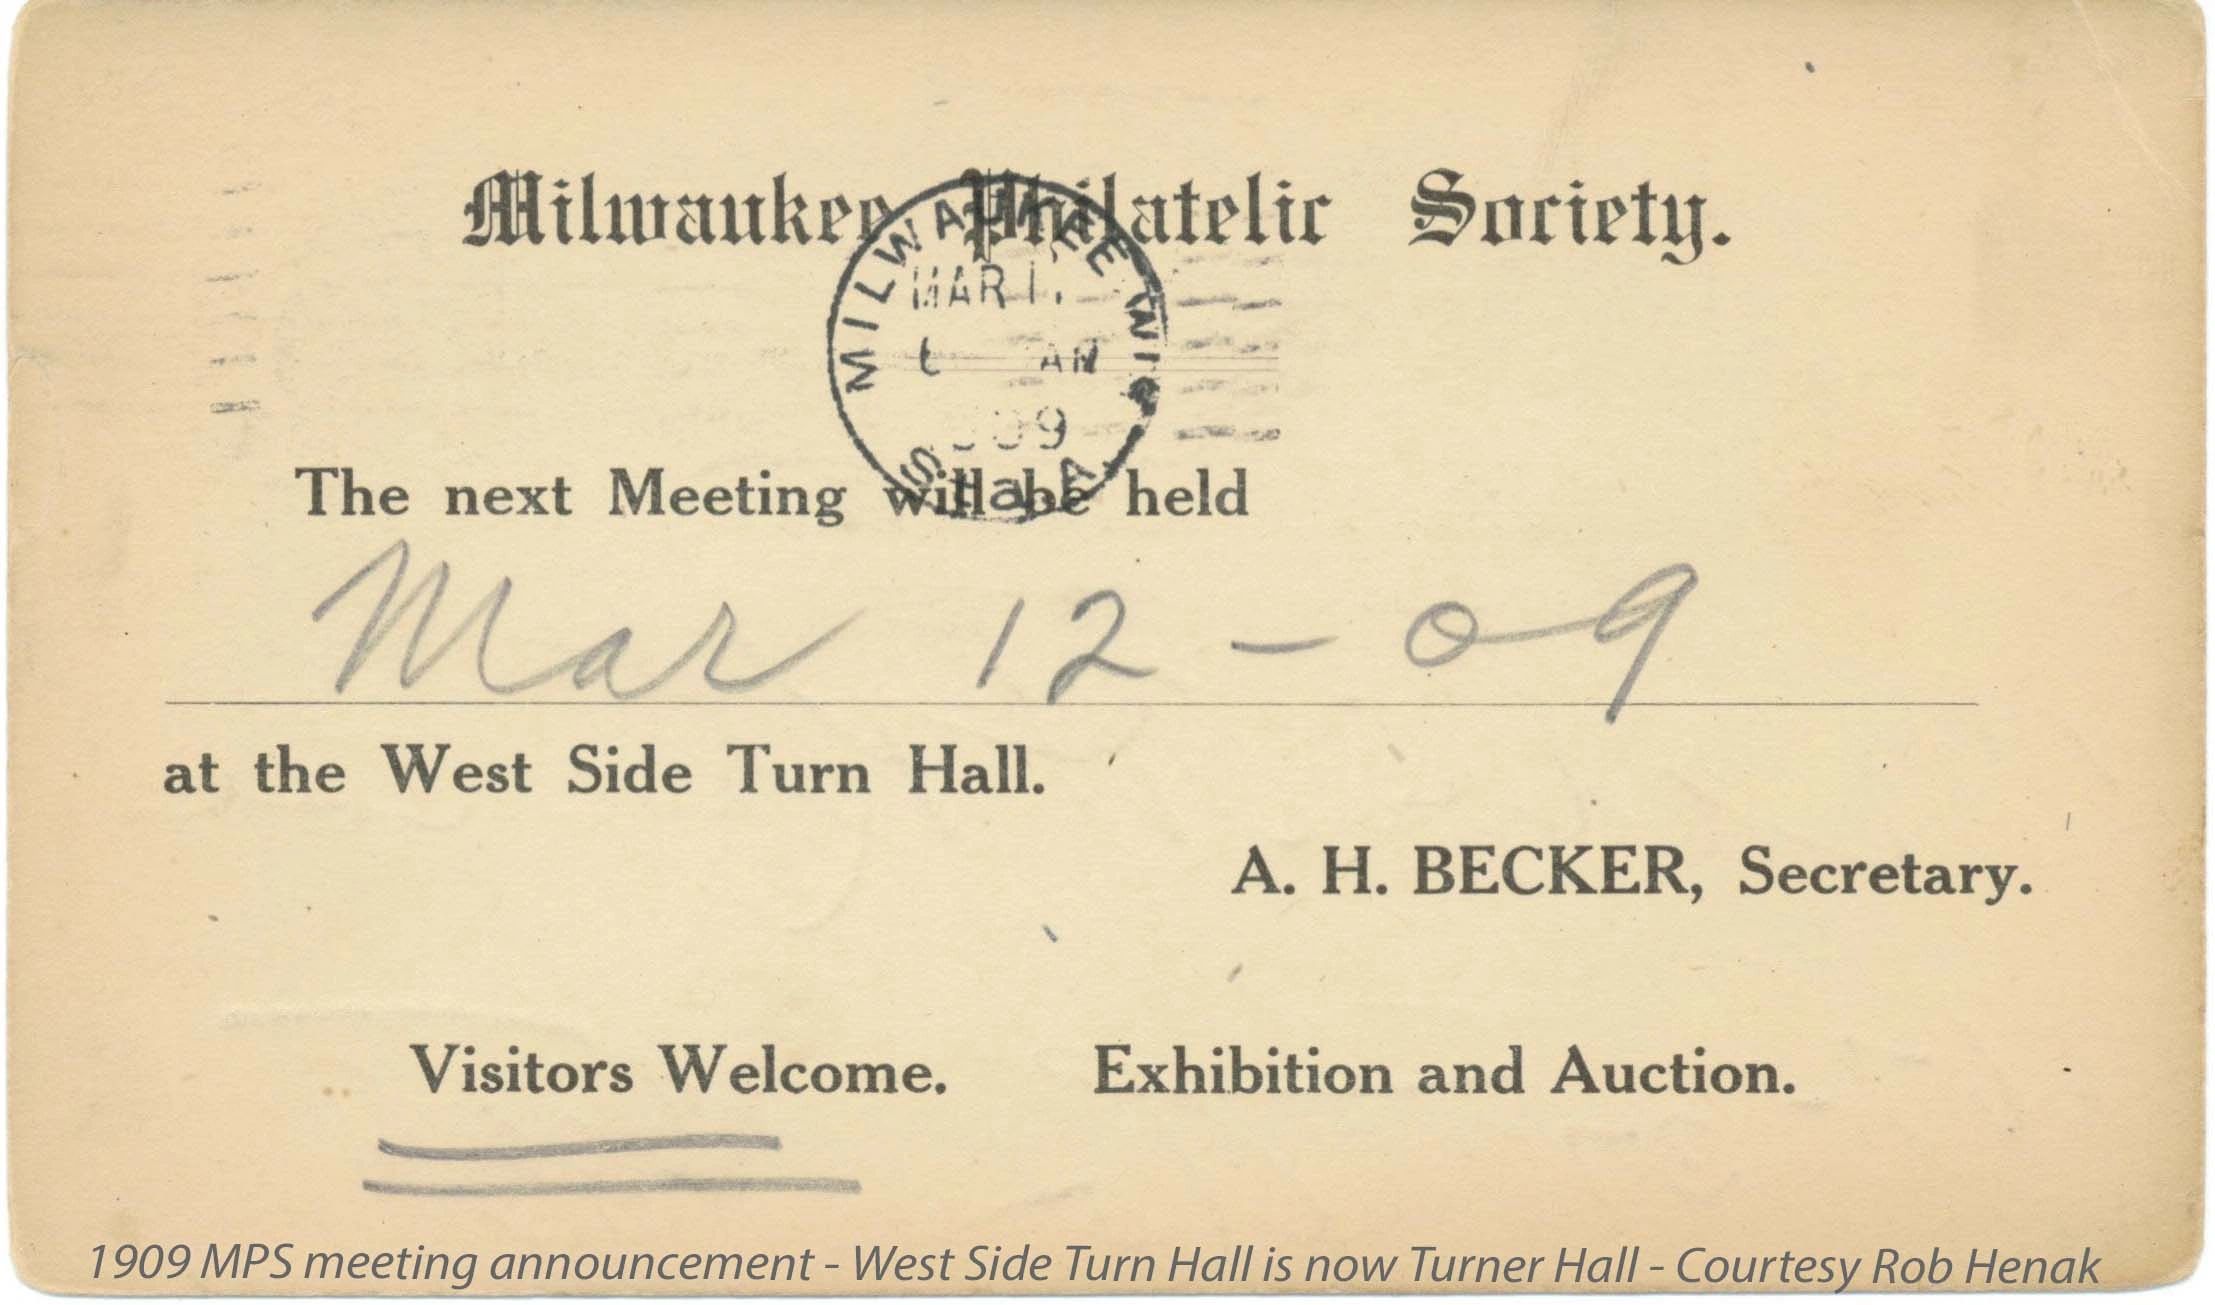 Milwaukee Philatelic Society.
MILWAUKEE WIS
MAR
AM
STA. A
The next Meeting will be held
Mar 12 - 09
at the West Side Turn Hall.
A. H. BECKER, Secretary.
Visitors Welcome. Exhibition and Auction.
1909 MPS meeting announcement - West Side Turn Hall is now Turner Hall - Courtesy Rob Henak